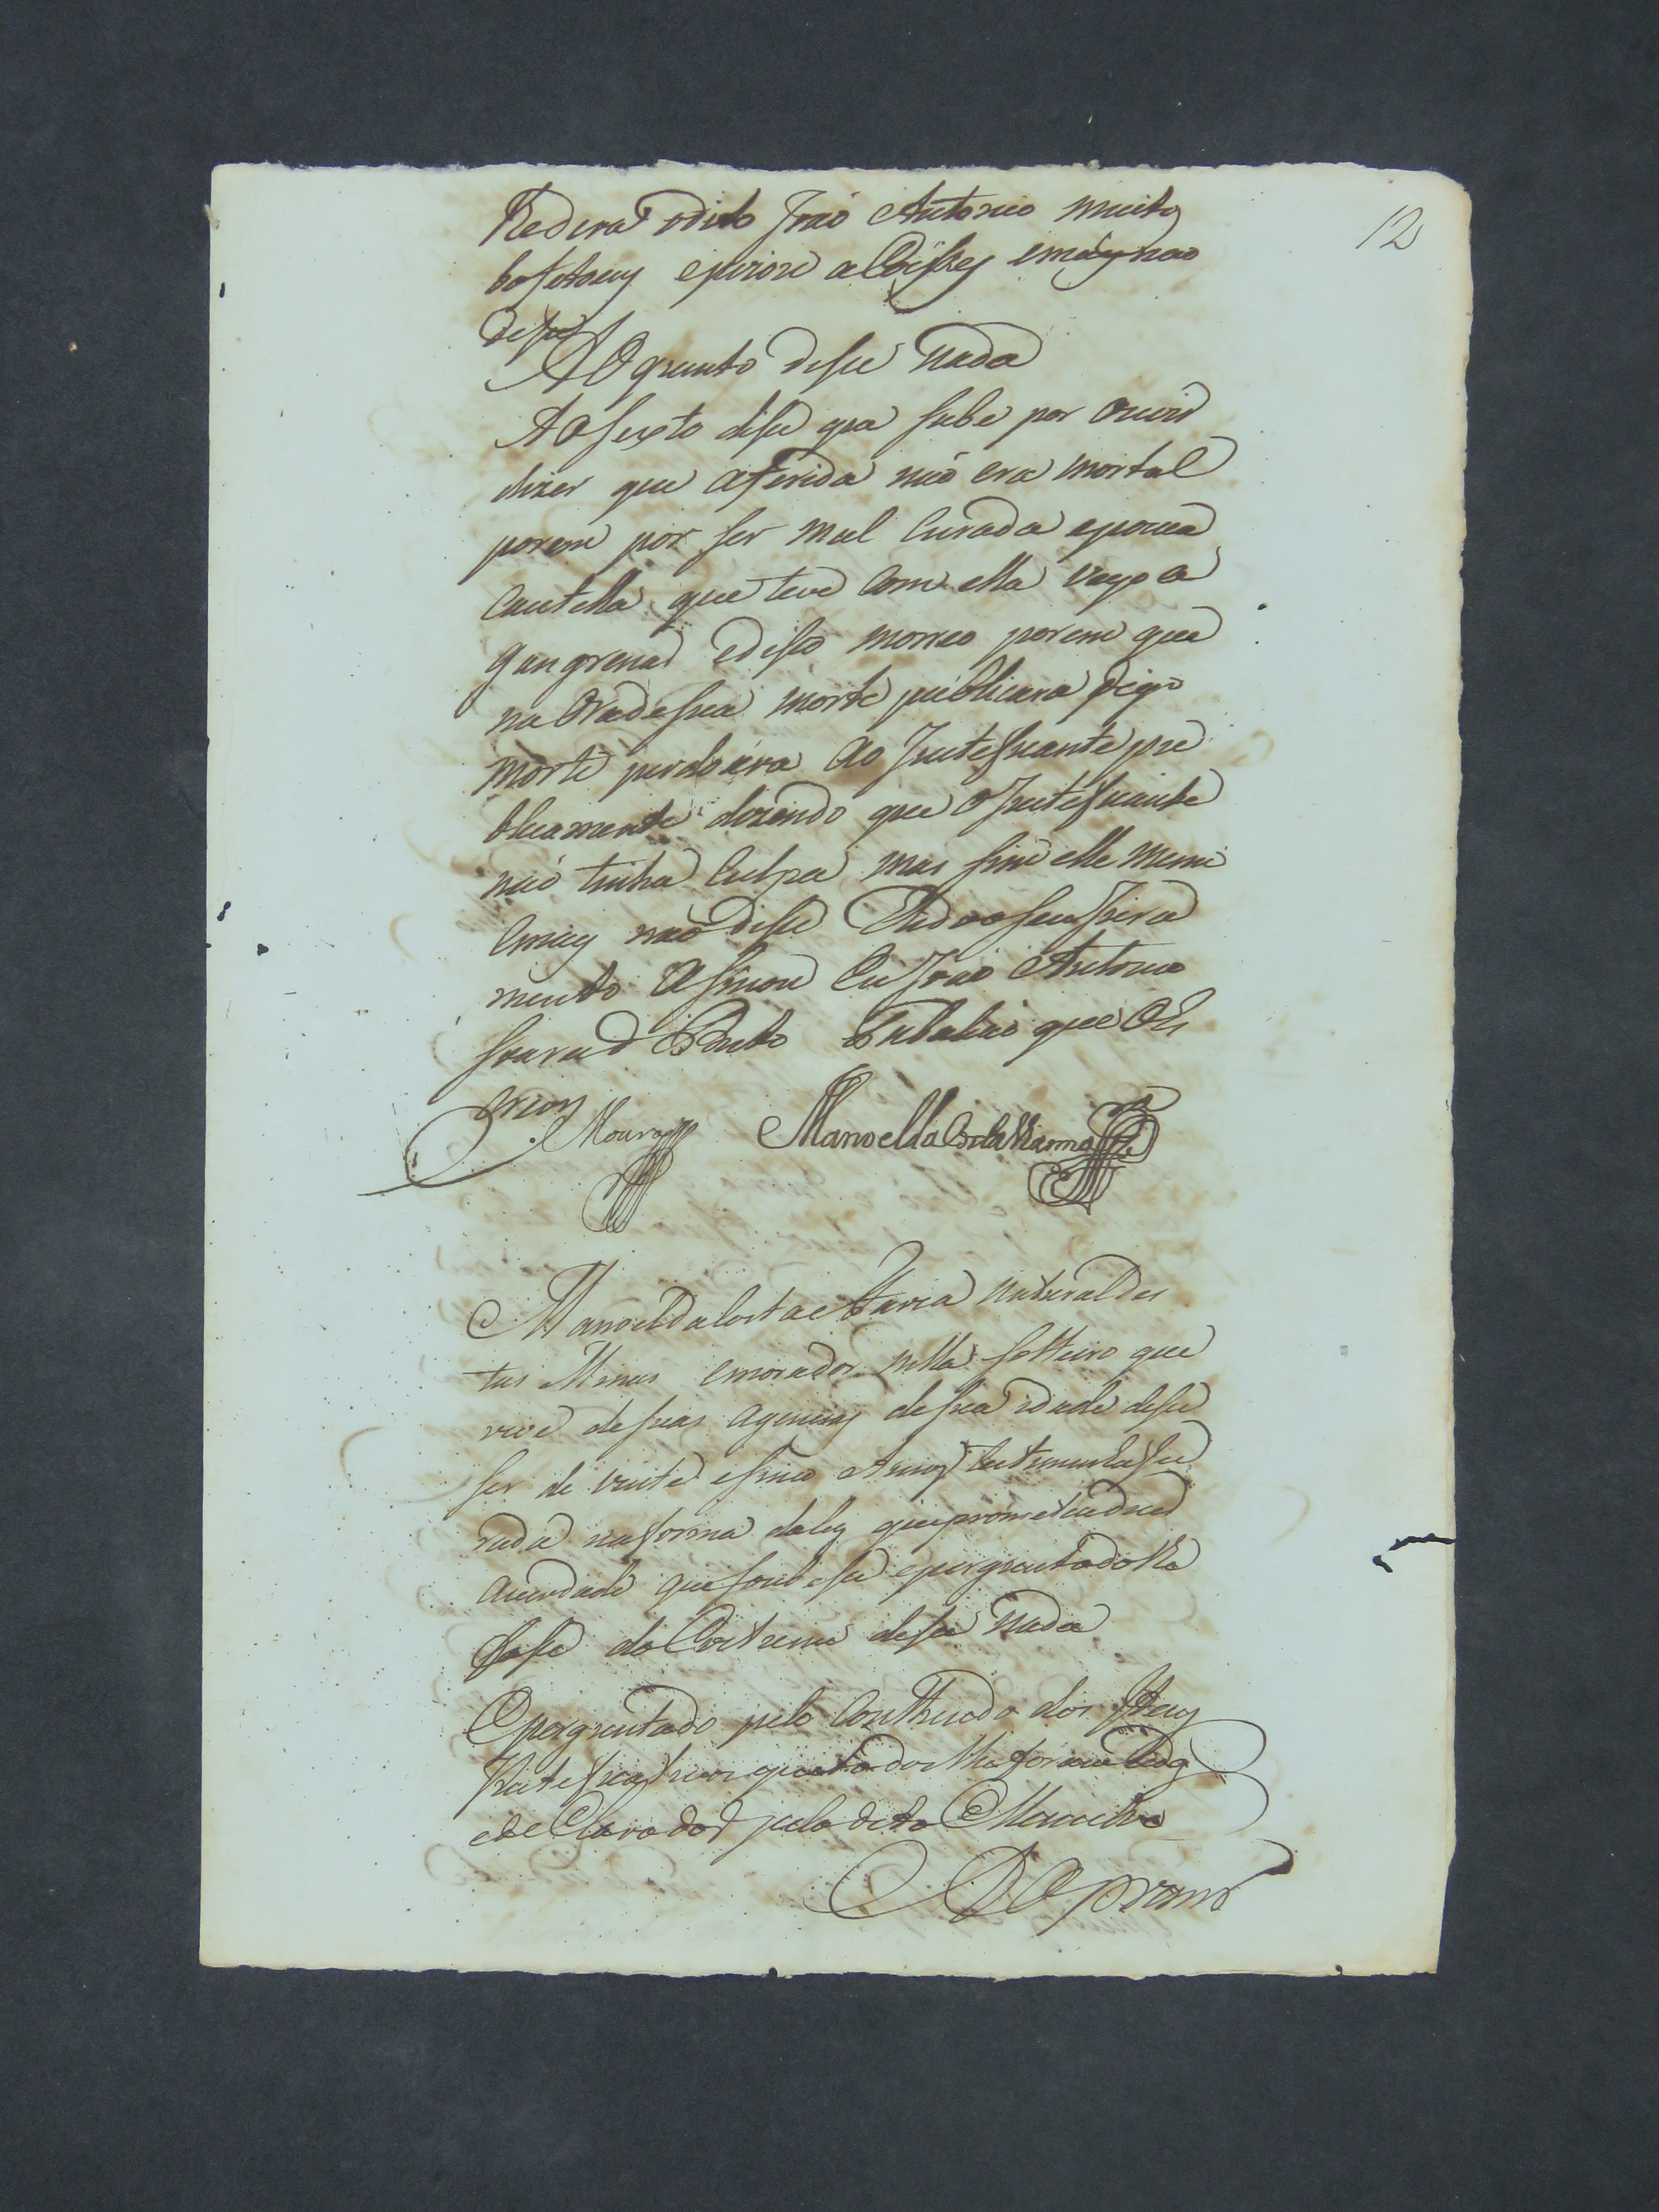 12
Redera odito João Antonio muitos
bofetoens epuzose a Coisses emais nao
disse
AO quinto disse nada
AO sexto disse que sabe por ouvir
dizer que aferida não era mortal
porem por ser mal Curada epouca
Cautella que teve Com ella veyo a
gangrenar edisto morreo porem que
na Oradesua morte publicara digo
morte perdoara ao Justeficante pu
blicamente dizendo que o Justeficante
não tinha Culpa mas sim elle
emais não disse edo seu Jura
mento asinou Eu João Antonio
Barbuto Tabaliao que o Es
crevy
Moura Manoel da
Manoel da Costa e Faria natural des
tas Minas emorador nella solteiro que
vive desuas agencias desua idade disse
ser de vinte esinco Annos testemunha Ju
rada naforma daley queprometeo dizer
averdade que soubesse eperguntado lhe
fosse do Costume disse nada
Eperguntado pelo Contheudo dos Itens
Justeficativos que todos lhe foram lidos
edeClarados pelo dito Menistro
AO primr